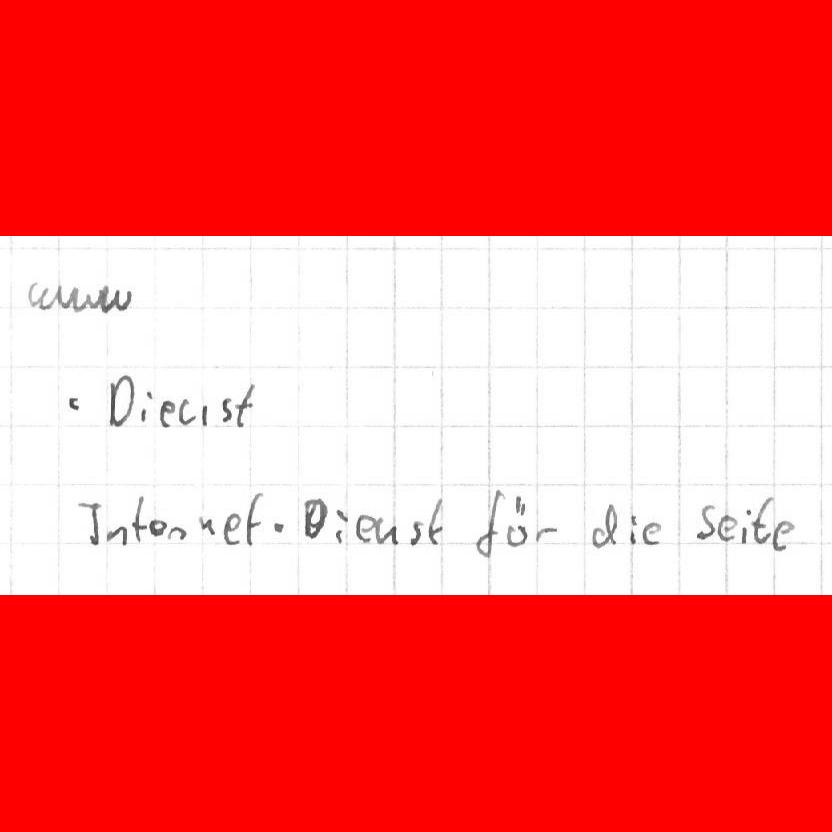 www
• Dienst
Internet-Dienst für die Seite